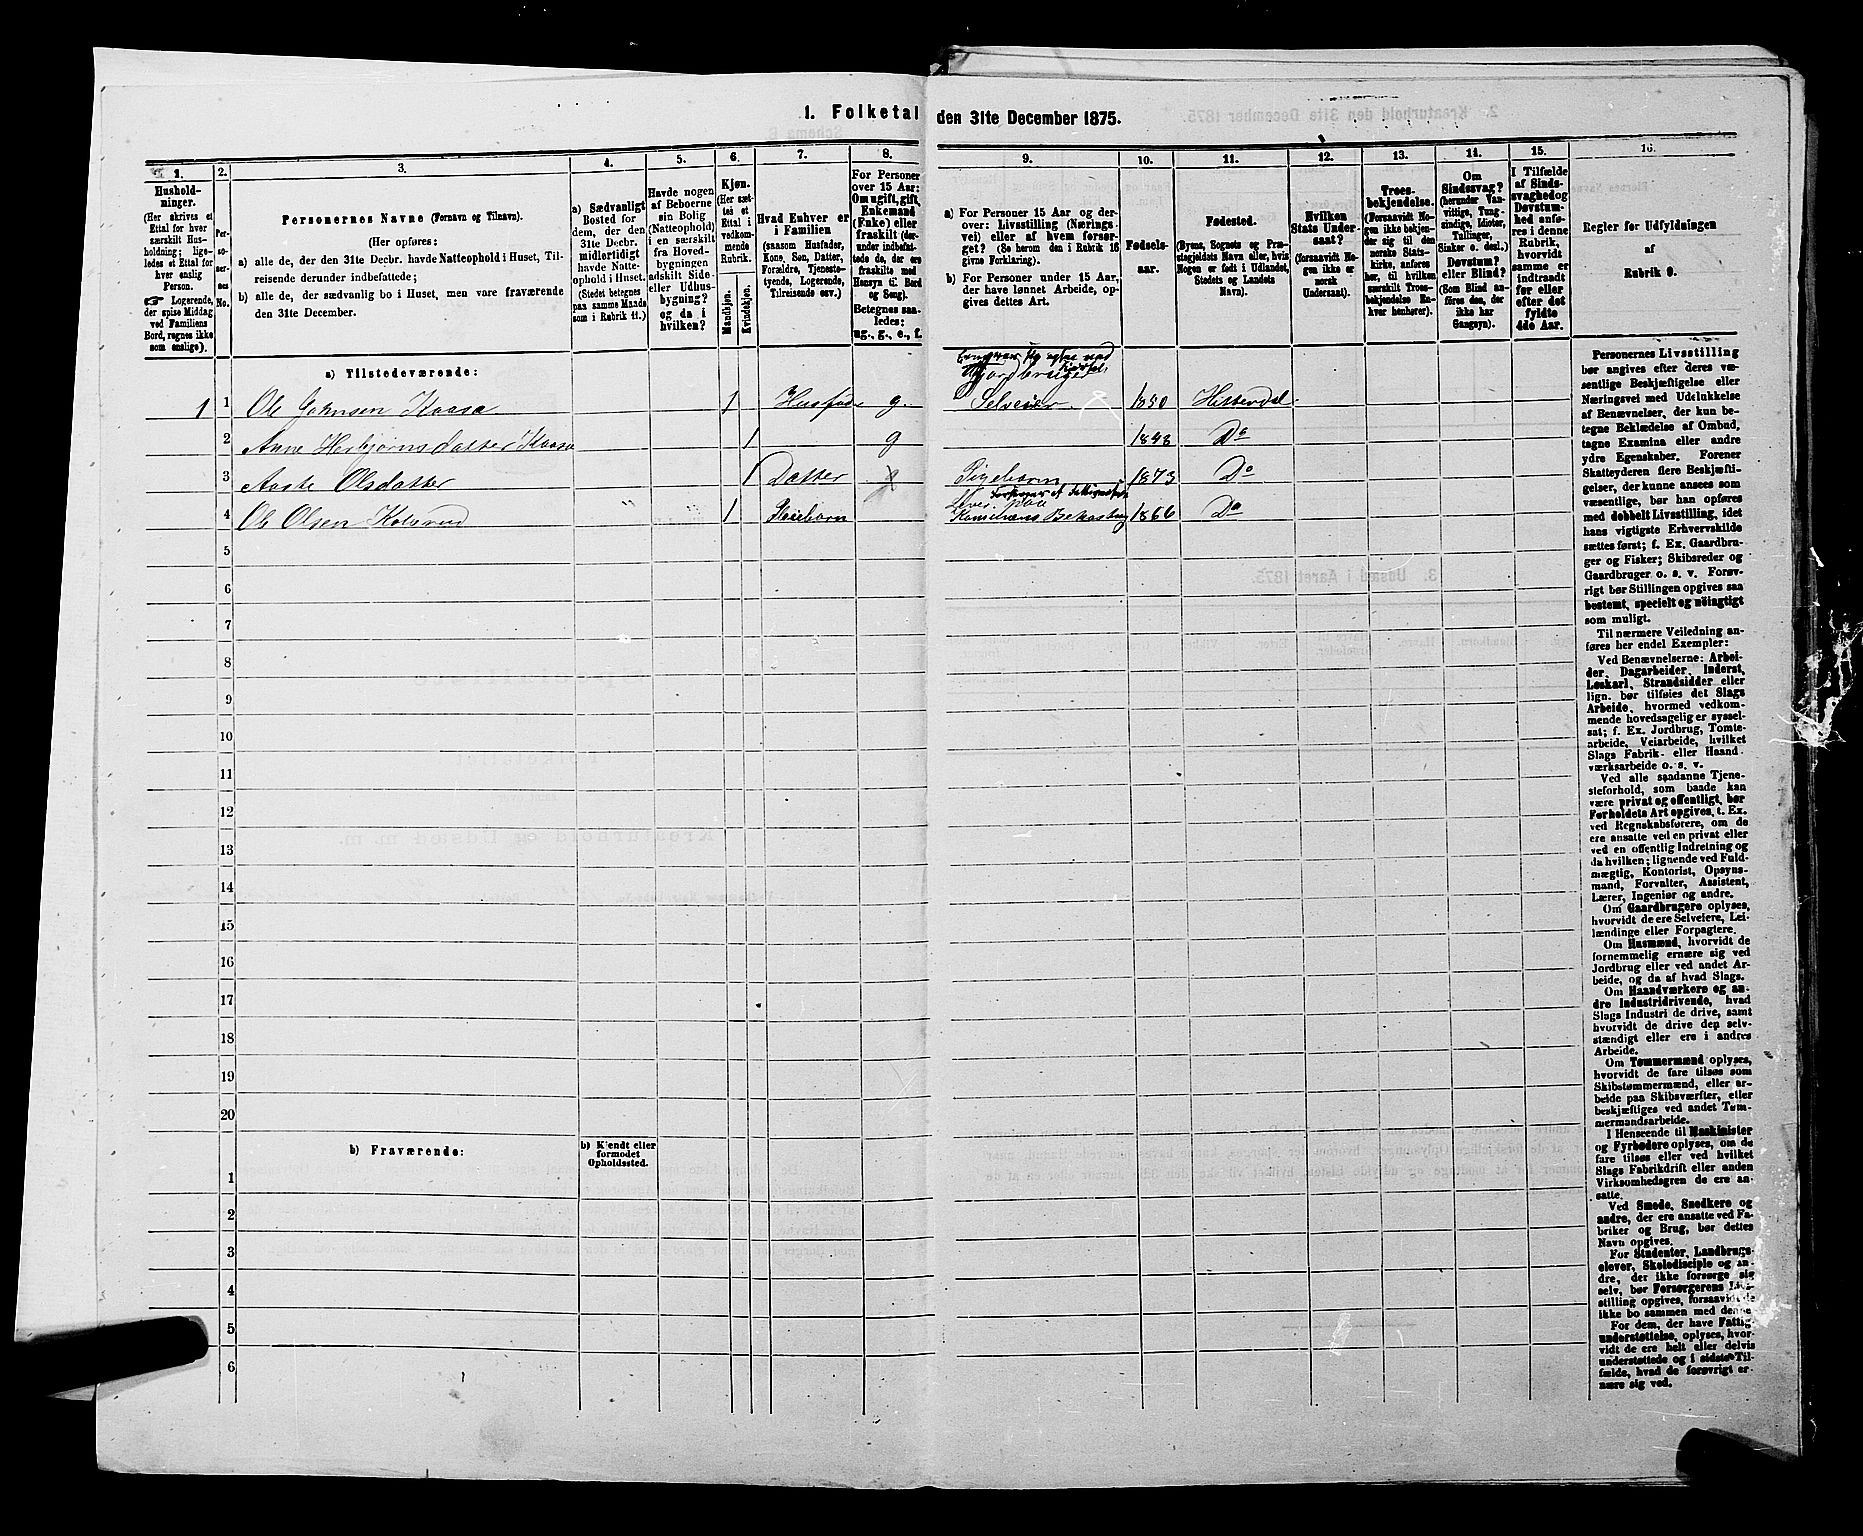 1. Folketal den 31te December 1875.
1.
Hushold-
ninger.
(Her skrives et
Ettal for hver
særskilt Hus-
holdning; lige-
ledes et Ettal for
hver enslig
Person.
☞ Logerende,
der spise Middag
ved Familiens
Bord, regnes ikke
som enslige).
2.
Per-
so-
ner-
nes
No.
3.
Personernes Navne (Fornavn og Tilnavn).
(Her opføres:
a) alle de, der den 31te Decbr. havde Natteophold i Huset, Til-
reisende derunder indbefattede;
b) alle de, der sædvanlig bo i Huset, men vare fraværende
den 31te December.
4.
a) Sædvanligt
Bosted for
dem, der den
31te Decbr.
midlertidigt
havde Natte-
ophold i Huset.
(Stedet betegnes
paa samme Maade
som i Rubrik 11.)
5.
Havde nogen
af Beboerne
sin Bolig
(Natteophold)
i en særskilt
fra Hoved-
bygningen
adskilt Side-
eller Udhus-
bygning?
og da i
hvilken?
6.
Kjøn.
(Her sæt-
tes et
Ettal i
vedkom-
mende
Rubrik.
Mandkjøn.
Kvindekjøn.
7.
Hvad Enhver er
i Familien
(saasom Husfader,
Kone, Søn, Datter,
Forældre, Tjeneste-
tyende, Logerende,
Tilreisende osv.)
8.
For Personer
over 15 Aar:
Om ugift, gift,
Enkemand
(Enke) eller
fraskilt (der-
under indbefat-
tede de, der ere
fraskilte med
Hensyn til Bord
og Seng).
Betegnes saa-
ledes:
ug., g., e., f.
9.
a) For Personer 15 Aar og der-
over: Livsstilling (Nærings-
vei) eller af hvem forsør-
get? (Se herom den i Rubrik 16
givne Forklaring).
b) For Personer under 15 Aar,
der have lønnet Arbeide, op-
gives dettes Art.
10.
Fødsels-
aar.
11.
Fødested.
(Byens, Sognets og Præ-
stegjeldets Navn eller, hvis
Nogen er født i Udlandet,
Stedets og Landets
Navn).
12.
Hvilken
Stats Under-
saat?
(forsaavidt No-
gen ikke er
norsk
Undersaat).
13.
Troes-
bekjendelse.
(Forsaavidt No-
gen ikke bekjen-
der sig til den
norske Stats-
kirke, anføres
her, til hvilken
særskilt Troes-
bekjendelse En-
hver henhører).
14.
Om
Sindssvag?
(herunder Van-
vittige, Tung-
sindige, Idioter,
Tullinger,
Sinker o. desl.)
Døvstum?
eller Blind?
(Som Blind an-
føres den, der
ikke har
Gangsyn).
15.
I Tilfælde
af Sinds-
svaghed og
Døvstum-
hed anfø-
res i denne
Rubrik,
hvorvidt
samme er
indtraadt
før eller
efter det
fyldte
4de Aar.
16.
Regler for Udfyldningen
af
Rubrik 9.
a) Tilstedeværende:
Gaardbruger
1 1 Ole Johnsen Kaasa 1 Husfader g. Selveier 1850 Hitterdal
2 Anne Herbjørnsdatter Kaasa 1 g 1848 Do
3 Aaste Olsdatter 1 Datter Pigebarn 1873 Do
4 Ole Olsen 1 Pleiebarn 1866 Do
5
6
7
8
9
10
11
12
13
14
15
16
17
18
19
20
b) Fraværende:
b) Kjendt eller
formodet
Opholdssted.
1
2
3
4
5
6
Personernes Livsstilling
bør angives efter deres væ-
sentlige Beskjæftigelse eller
Næringsvei med Udelukkelse
af Benævnelser, der kun be-
tegne Beklædelse af Ombud,
tagne Examina eller andre
ydre Egenskaber. Forener
Skatteyderen flere Beskjæfti-
gelser, der kunne ansees som
væsentlige, bør han opføres
med dobbelt Livsstilling, idet
hans vigtigste Erhvervskilde
sættes først; f. Ex. Gaardbru-
ger og Fisker; Skibsreder og
Gaardbruger o. s. v. Forøv-
rigt bør Stillingen opgives saa
bestemt, specielt og nøiagtigt
som muligt.
Til nærmere Veiledning an-
føres her endel Exempler:
Ved Benævnelserne: Arbei-
der, Dagarbeider, Inderst,
Løskarl, Strandsidder eller
lign. bør tilføies det Slags
Arbeide, hvormed vedkom-
mende hovedsagelig er syssel-
sat; f. Ex. Jordbrug, Tomte-
arbeide, Veiarbeide, hvilket
Slags Fabrik- eller Haand-
værksarbeide o. s. v.
Ved alle saadanne Tjene-
steforhold, som baade kan
være privat og offentligt, bør
Forholdets Art opgives, t. Ex.
ved Regnskabsførere, om de
ere ansatte ved en privat eller
ved en offentlig Indretning og
da hvilken; lignende ved Fuld-
mægtig, Kontorist, Opsyns-
mand, Forvalter, Assistent,
Lærer, Ingeniør og andre.
Om Gaardbrugere oplyses,
hvorvidt de ere Selveiere, Lei-
lændinge eller Forpagtere.
Om Husmænd, hvorvidt de
fornemmelig ernære sig ved
Jordbrug eller ved andet Ar-
beide, og da af hvad Slags.
Om Haandværkere og an-
dre Industridrivende, hvad
Slags Industri de drive, samt
hvorvidt de drive den selv-
stændigt eller ere i andres
Arbeide.
Om Tømmermænd oplyses,
hvorvidt de fare tilsøs som
Skibstømmermænd, eller ar-
beide paa Skibsværfter, eller
beskjæftiges ved andet Tøm-
mermandsarbeide.
I Henseende til Maskinister
og Fyrbødere oplyses, om de
fare tilsøs eller ved hvilket
Slags Fabrikdrift eller anden
Virksomhedsgren de ere an-
satte.
Ved Smede, Snedkere og
andre, der ere ansatte ved Fa-
briker og Brug, bør dettes
Navn opgives.
For Studenter, Landbrugs-
elever, Skoledisciple og an-
dre, der ikke forsørge sig
selv, bør Forsørgerens Livs-
stilling opgives, forsaavidt de
ikke bo sammen med denne.
For dem, der have Fattig-
understøttelse, oplyses, hvor-
vidt de ere helt eller delvis
understøttede og i sidste Til-
fælde, hvad de forøvrigt er-
nære sig ved.